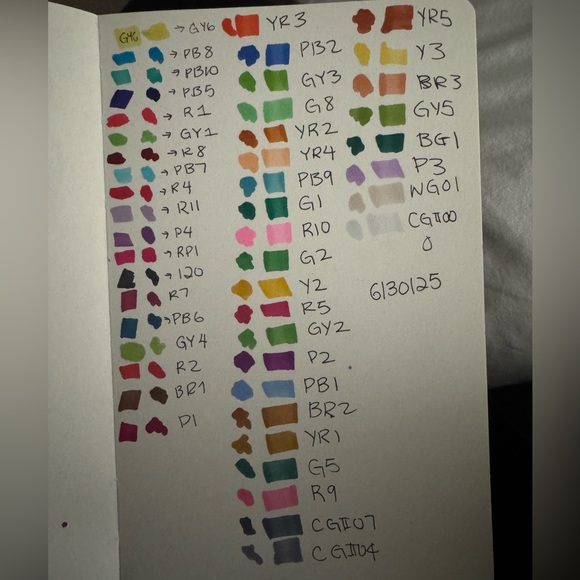 GY6 → GY6
→ PB8
→ PB10
→ PB5
→ R1
→ GY1
→ R8
→ PB7
→ R4
→ R11
→ P4
→ RP1
→ 120
→ R7
→ PB6
GY4
R2
BR1
P1
YR3
PB2
GY3
G8
YR2
YR4
PB9
G1
R10
G2
Y2
R5
GY2
P2
PB1
BR2
YR1
G5
R9
CGII07
CGII04
YR5
Y3
BR3
GY5
BG1
P3
WG01
CGII00
0
6/30/25